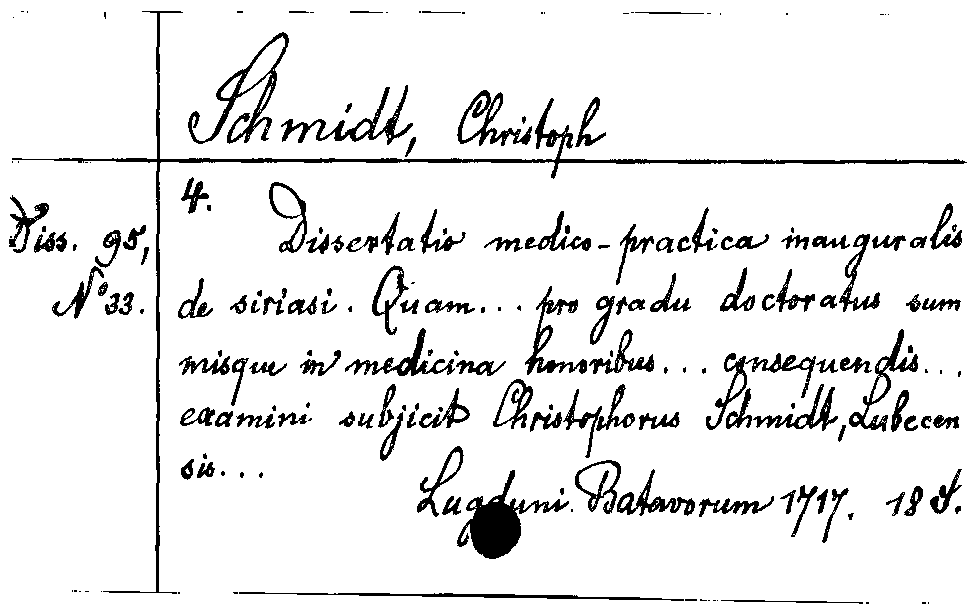 Schmidt, Christoph
4.
Diss. 95, Dissertatio medico-practica inauguralis
N° 33. de siriasi. Quam... pro gradu doctoratus sum
misque in medicina honoribus... consequendis...
examini subjicit Christophorus Schmidt, Lubecen
sis...
Lugduni Batavorum 1717. 18 S.